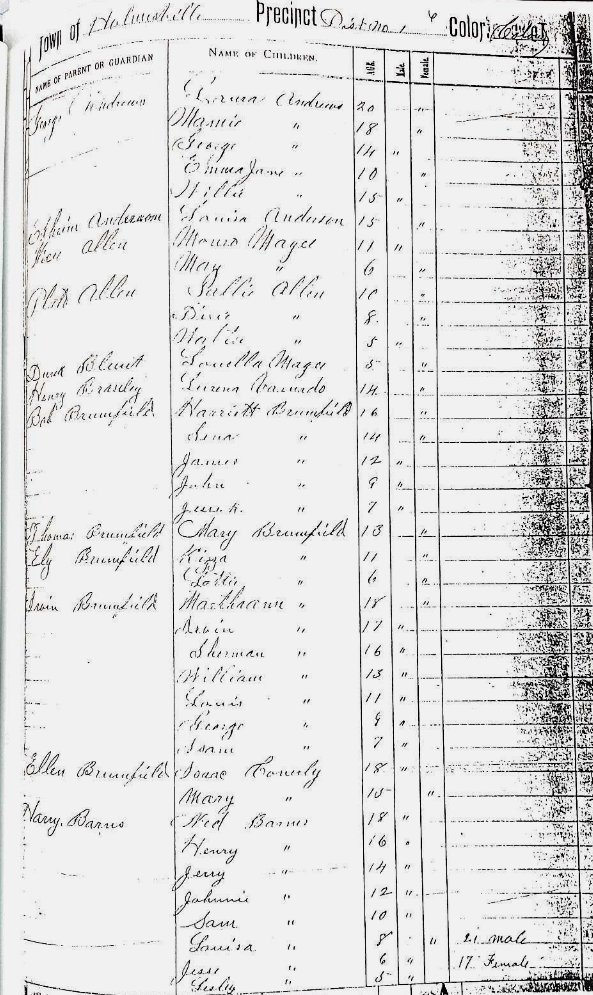 Town of Holmesville Precinct Dist. No. 1 Color
NAME OF PARENT OR GUARDIAN NAME OF CHILDREN. AGE. Male. Female.
George Andrews Andrews 20 "
Mamie " 18 "
George " 14 "
Emma Jane " 10 "
Willie " 15 "
Anderson Louisa Anderson 15 "
Allen Monro Magee 11 "
May " 6 "
Allen Sallie Allen 10 "
" 8 "
" 5 "
Blunt Louella Magee 5 "
Henry Lurena Varnado 14 "
Bob Brumfield Harriett Brumfield 16 "
Lena " 14 "
James " 12 "
John " 9 "
Jesse K. " 7 "
Thomas Brumfield Mary Brumfield 13 "
Ely Brumfield Kizza " 11 "
Lottie " 6 "
Irvin Brumfield Marthaann " 18 "
Irvin " 17 "
Sherman " 16 "
William " 13 "
Louis " 11 "
George " 9 "
Isam " 7 "
Ellen Brumfield Isaac Conerly 18 "
Mary " 15 "
Harry Barns Ned Barns 18 "
Henry " 16 "
Jerry " 14 "
Johnnie " 12 "
Sam " 10 "
Louisa " 8 " 21 male
Jesse " 6 " 17 Female
Lesley " 5 "